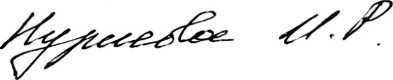 Нуриева И. Р.